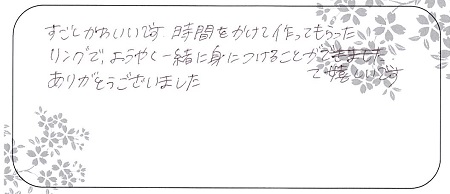 すごくかわいいです 時間をかけて作ってもらった
リングで、ようやく一緒に身につけることができました
て嬉しいです
ありがとうございました